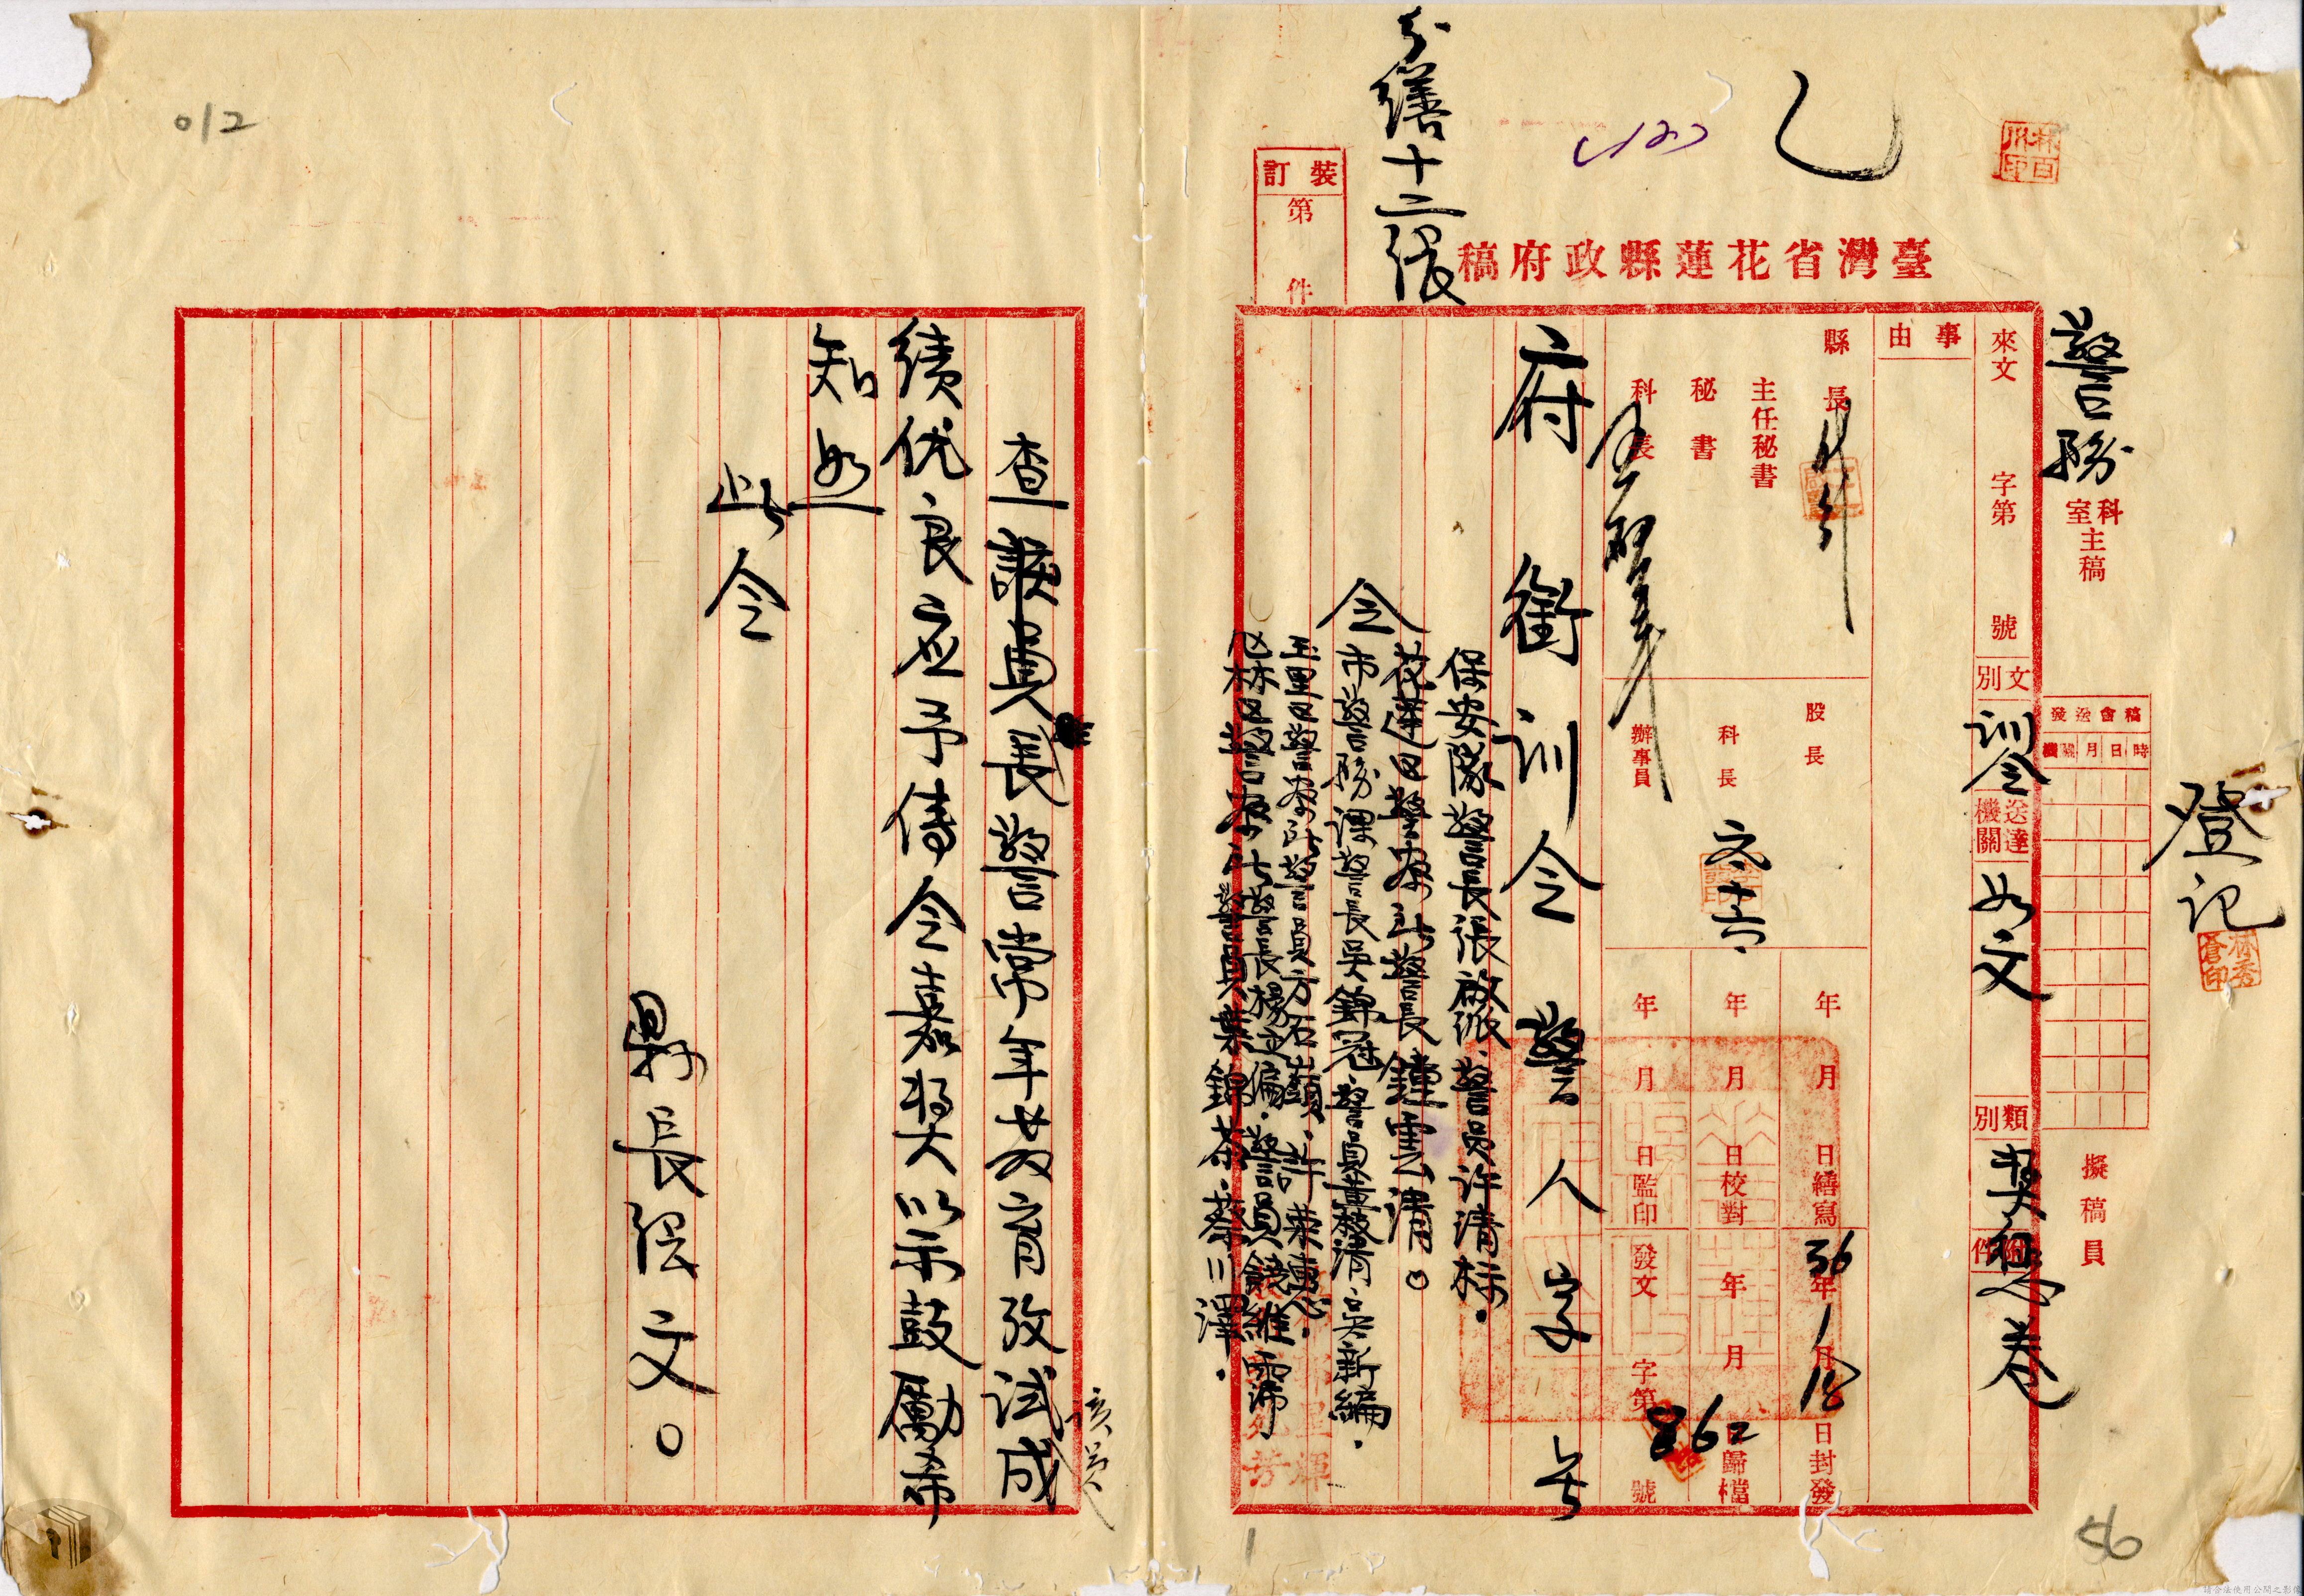 012
56
1
乙
分繕十二張
裝訂
第 件
臺灣省花蓮縣政府稿
警務
科室主稿
擬稿員
登記
林秀蒼印
稿會送發
時日月機關
來文 字第 號
文別
訓令
送達機關
如文
類別
附件
事由
縣長
主任秘書
秘書
科長
股長
科長
辦事員
年 月 日繕寫
年 月 日校對
年 月 日監印
36年1月18日封發
年 月 日歸檔
發文 字第 862 號
府銜訓令 警人字 號
令
保安隊警長張啟派.警員許清標.
花蓮區警察所警長鍾雲清。
市警務課警長吳錦冠.警員黃發清.吳新編.
玉里區警察所警員方石頭.許來連.
鳳林區警察所警長楊.警員錢維霈
警員葉錦泰.蔡川澤.
查該員長警常年教育考試成
績优良应予傳令嘉獎以示鼓勵希
知照
此令
縣長張文。
請合法使用公開之影像